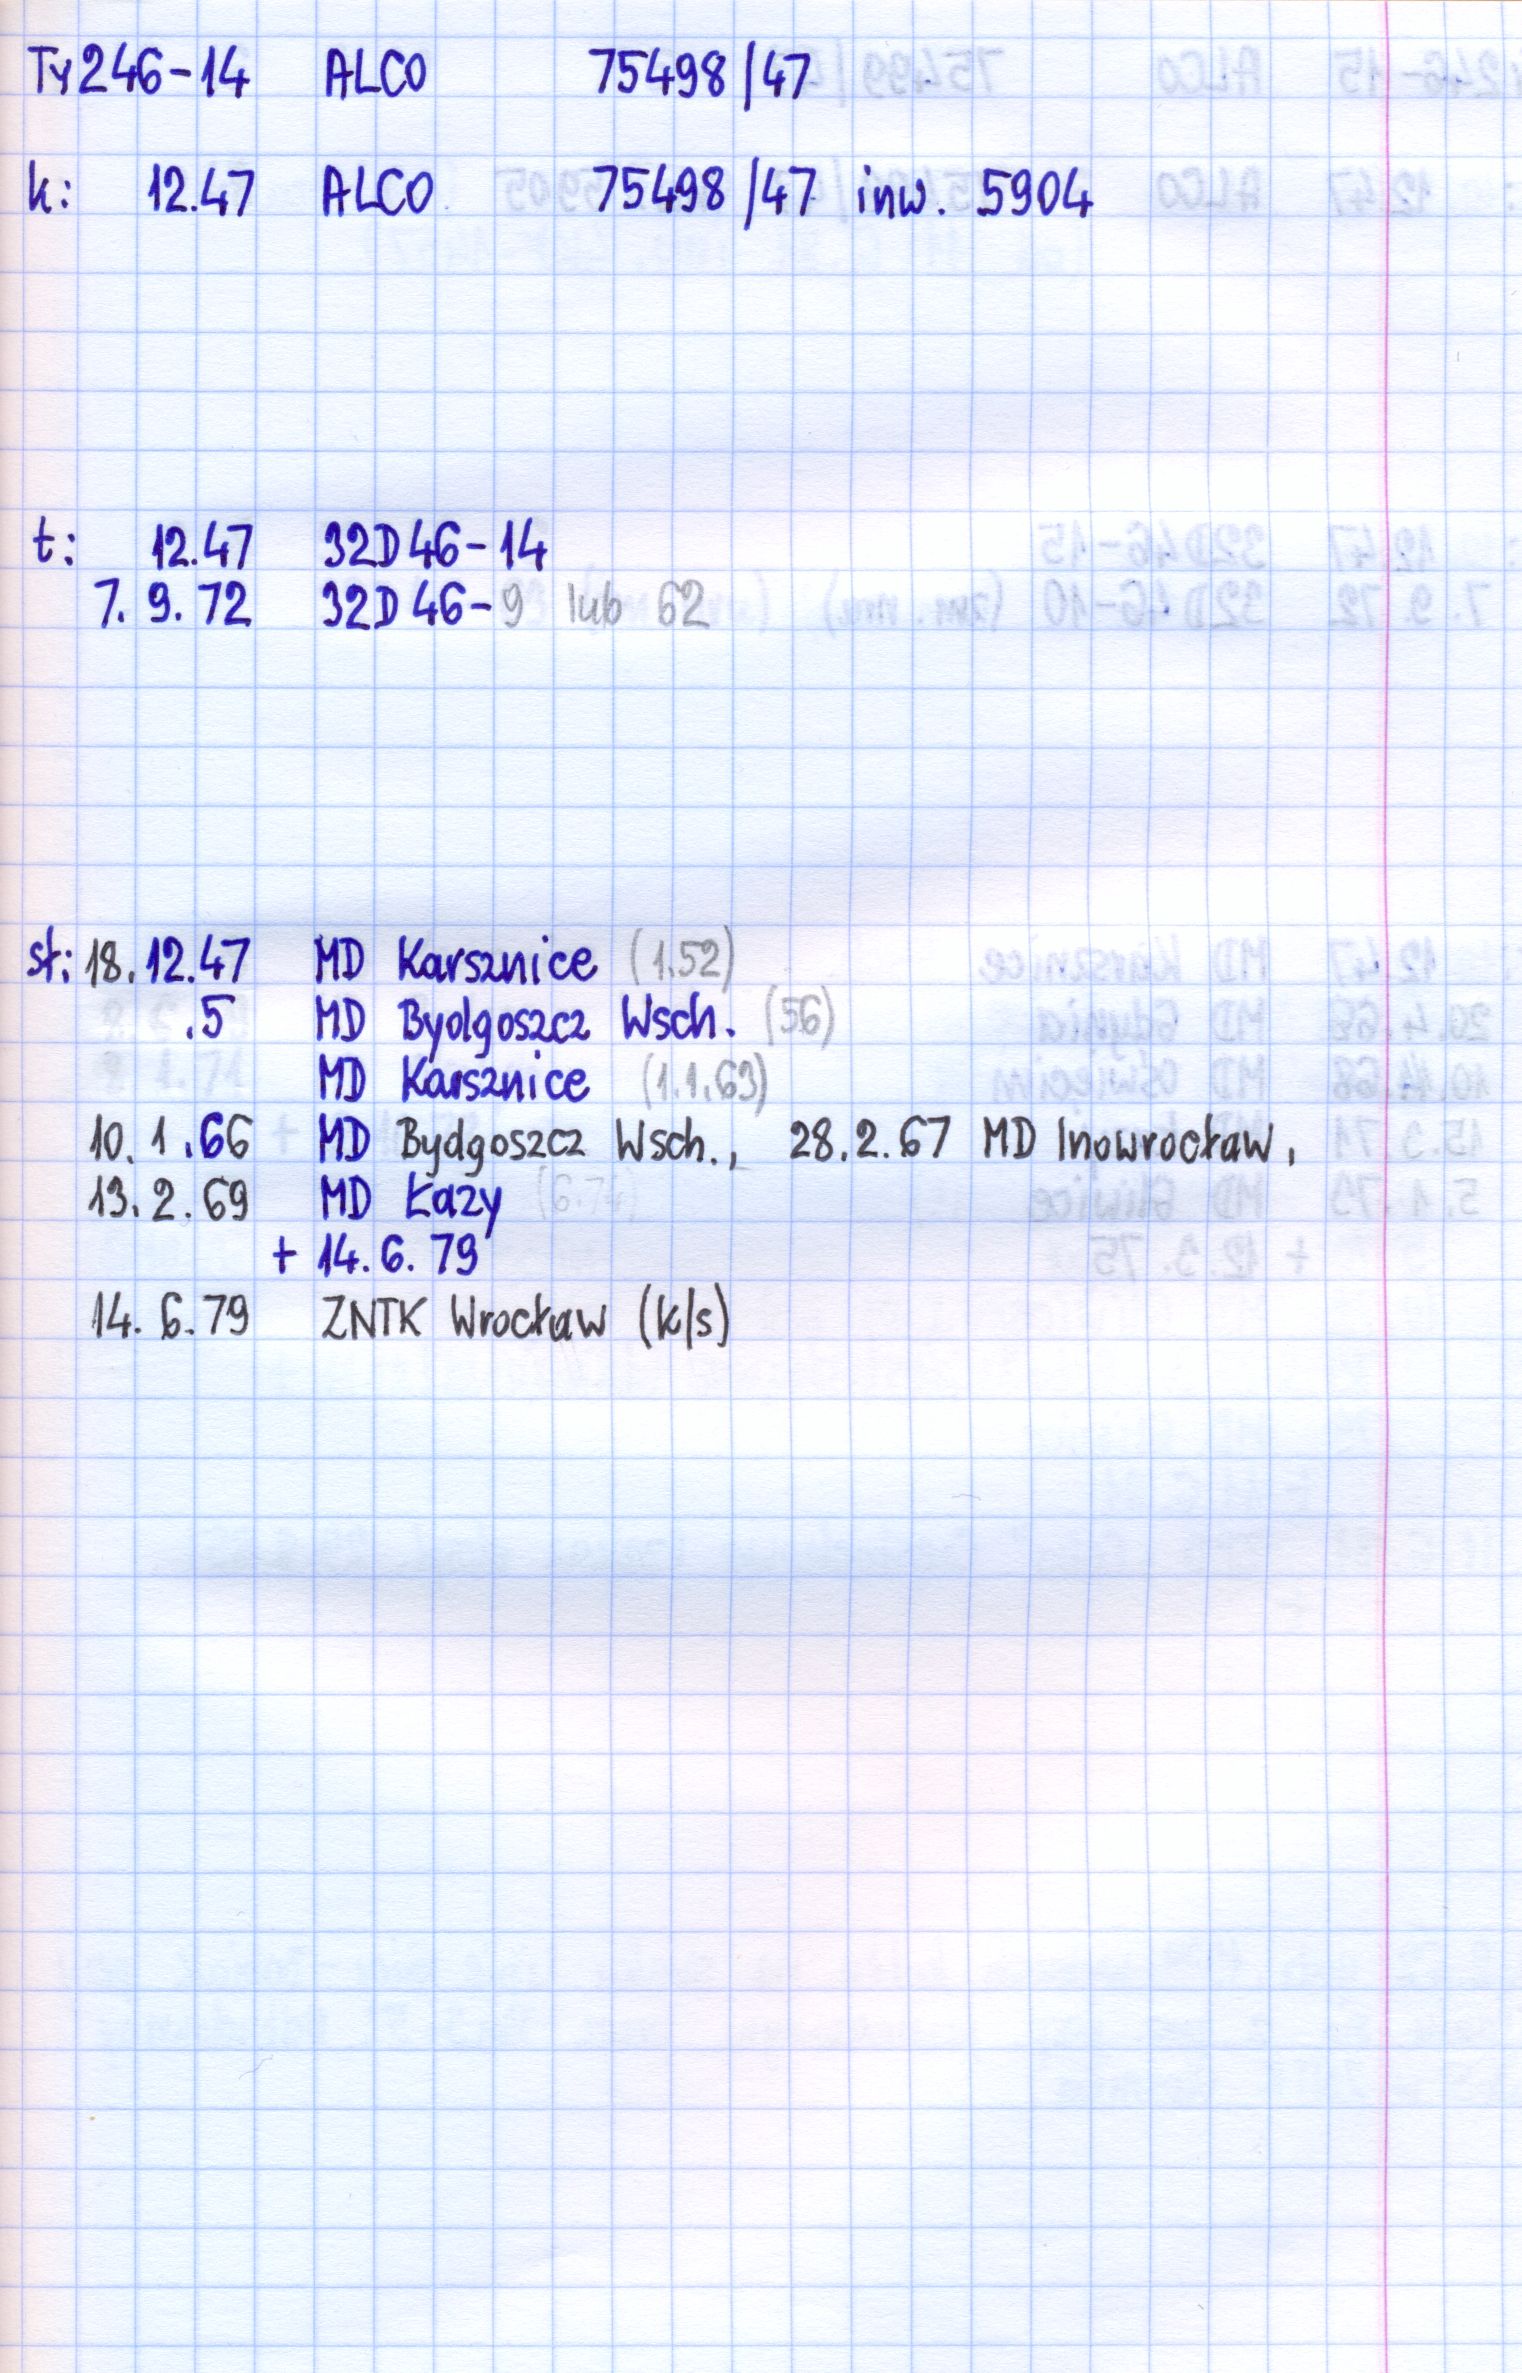 Ty246-14 ALCO 75498/47
k: 12.47 ALCO 75498/47 inw. 5904
t: 12.47 32D46-14
7. 9. 72 32D46-9 lub 62
st: 18. 12.47 MD Karsznice (1.52)
.5 MD Bydgoszcz Wsch. (56)
MD Karsznice (1.1.63)
10. 1 .66 MD Bydgoszcz Wsch., 28.2.67 MD Inowrocław,
13. 2. 69 MD Łazy (6.74)
+ 14. 6. 79
14. 6. 79 ZNTK Wrocław (k/s)